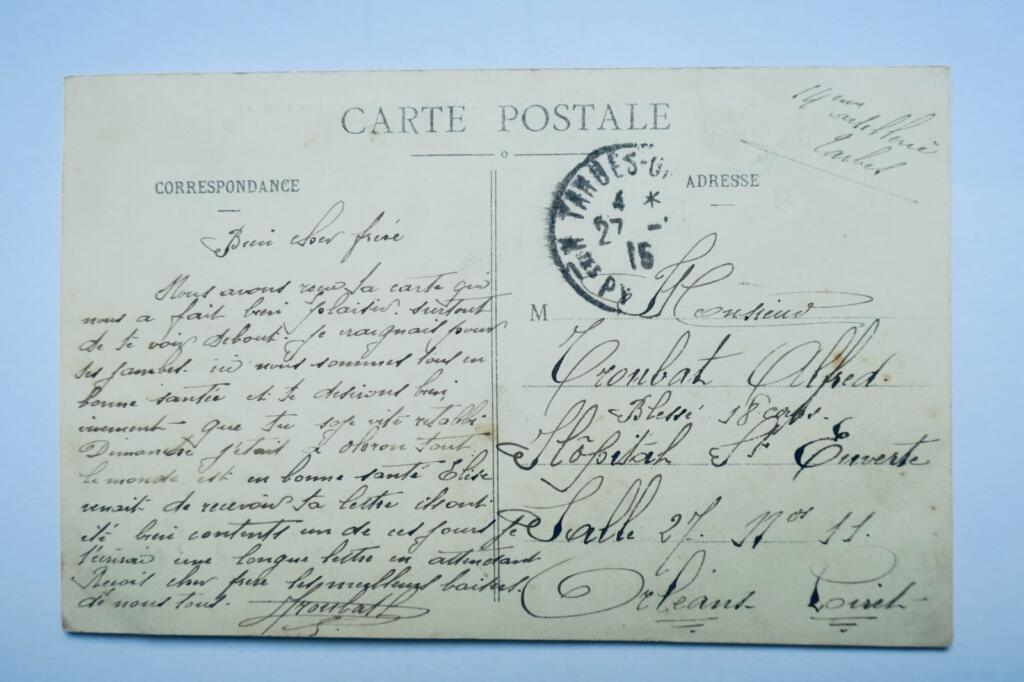 CARTE POSTALE
CORRESPONDANCE
Bien cher frère
Nous avons reçu ta carte qui
nous a fait bien plaisir. surtout
de te voir debout. je craignais pour
tes jambes. ici nous sommes tous en
bonne santée et te desirons bien
vivement que tu soje vite retabli
Dimanche j'étais a oloron tout
le monde est en bonne santé Elise
venait de recevoir ta lettre ils ont
été bien contents un de ces jours je
t'écrirai une longue lettre en attendant
Reçois cher frère les meilleurs baisers
de nous tous. Troubat
ADRESSE
19 eme
artillerie
Tarbes
TARBES
4 *
27
15
M Monsieur
Troubat Alfred.
Blessé 18e corps.
Hôpital St Euverte
Salle 27. Nos 11.
Orléans Loiret